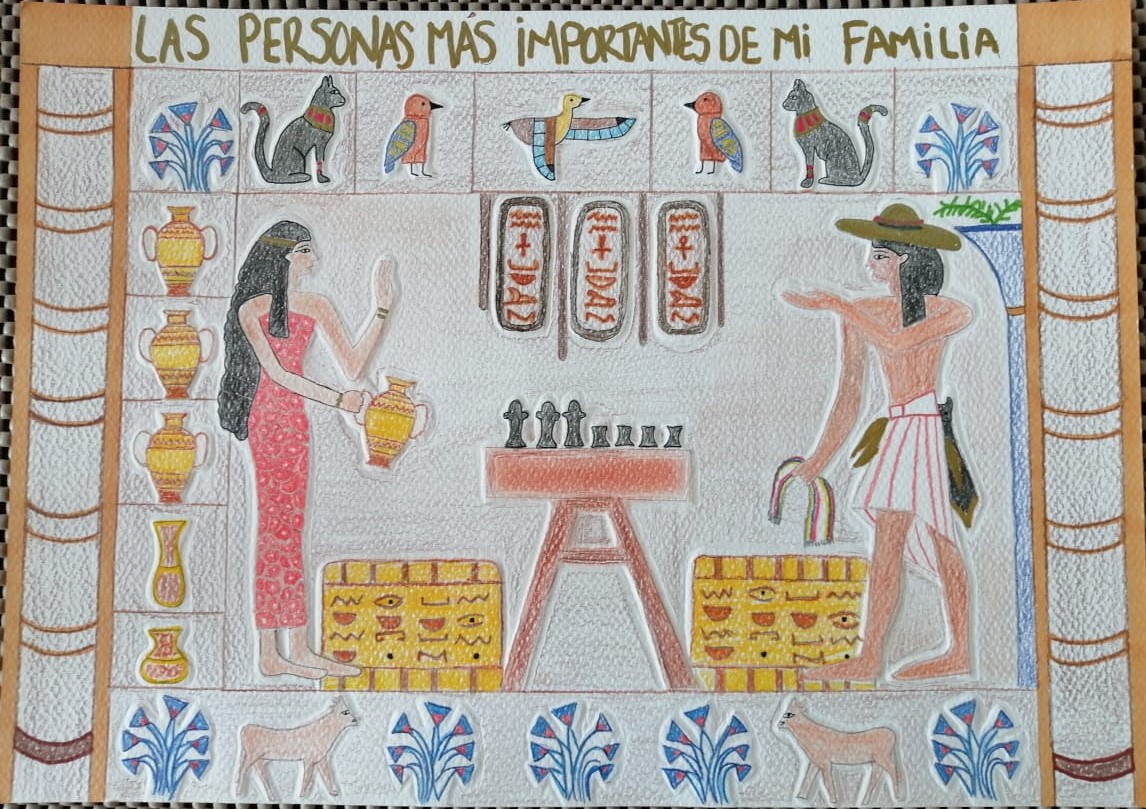 LAS PERSONAS MÁS iMPORTANTES DE Mi FAMiLiA